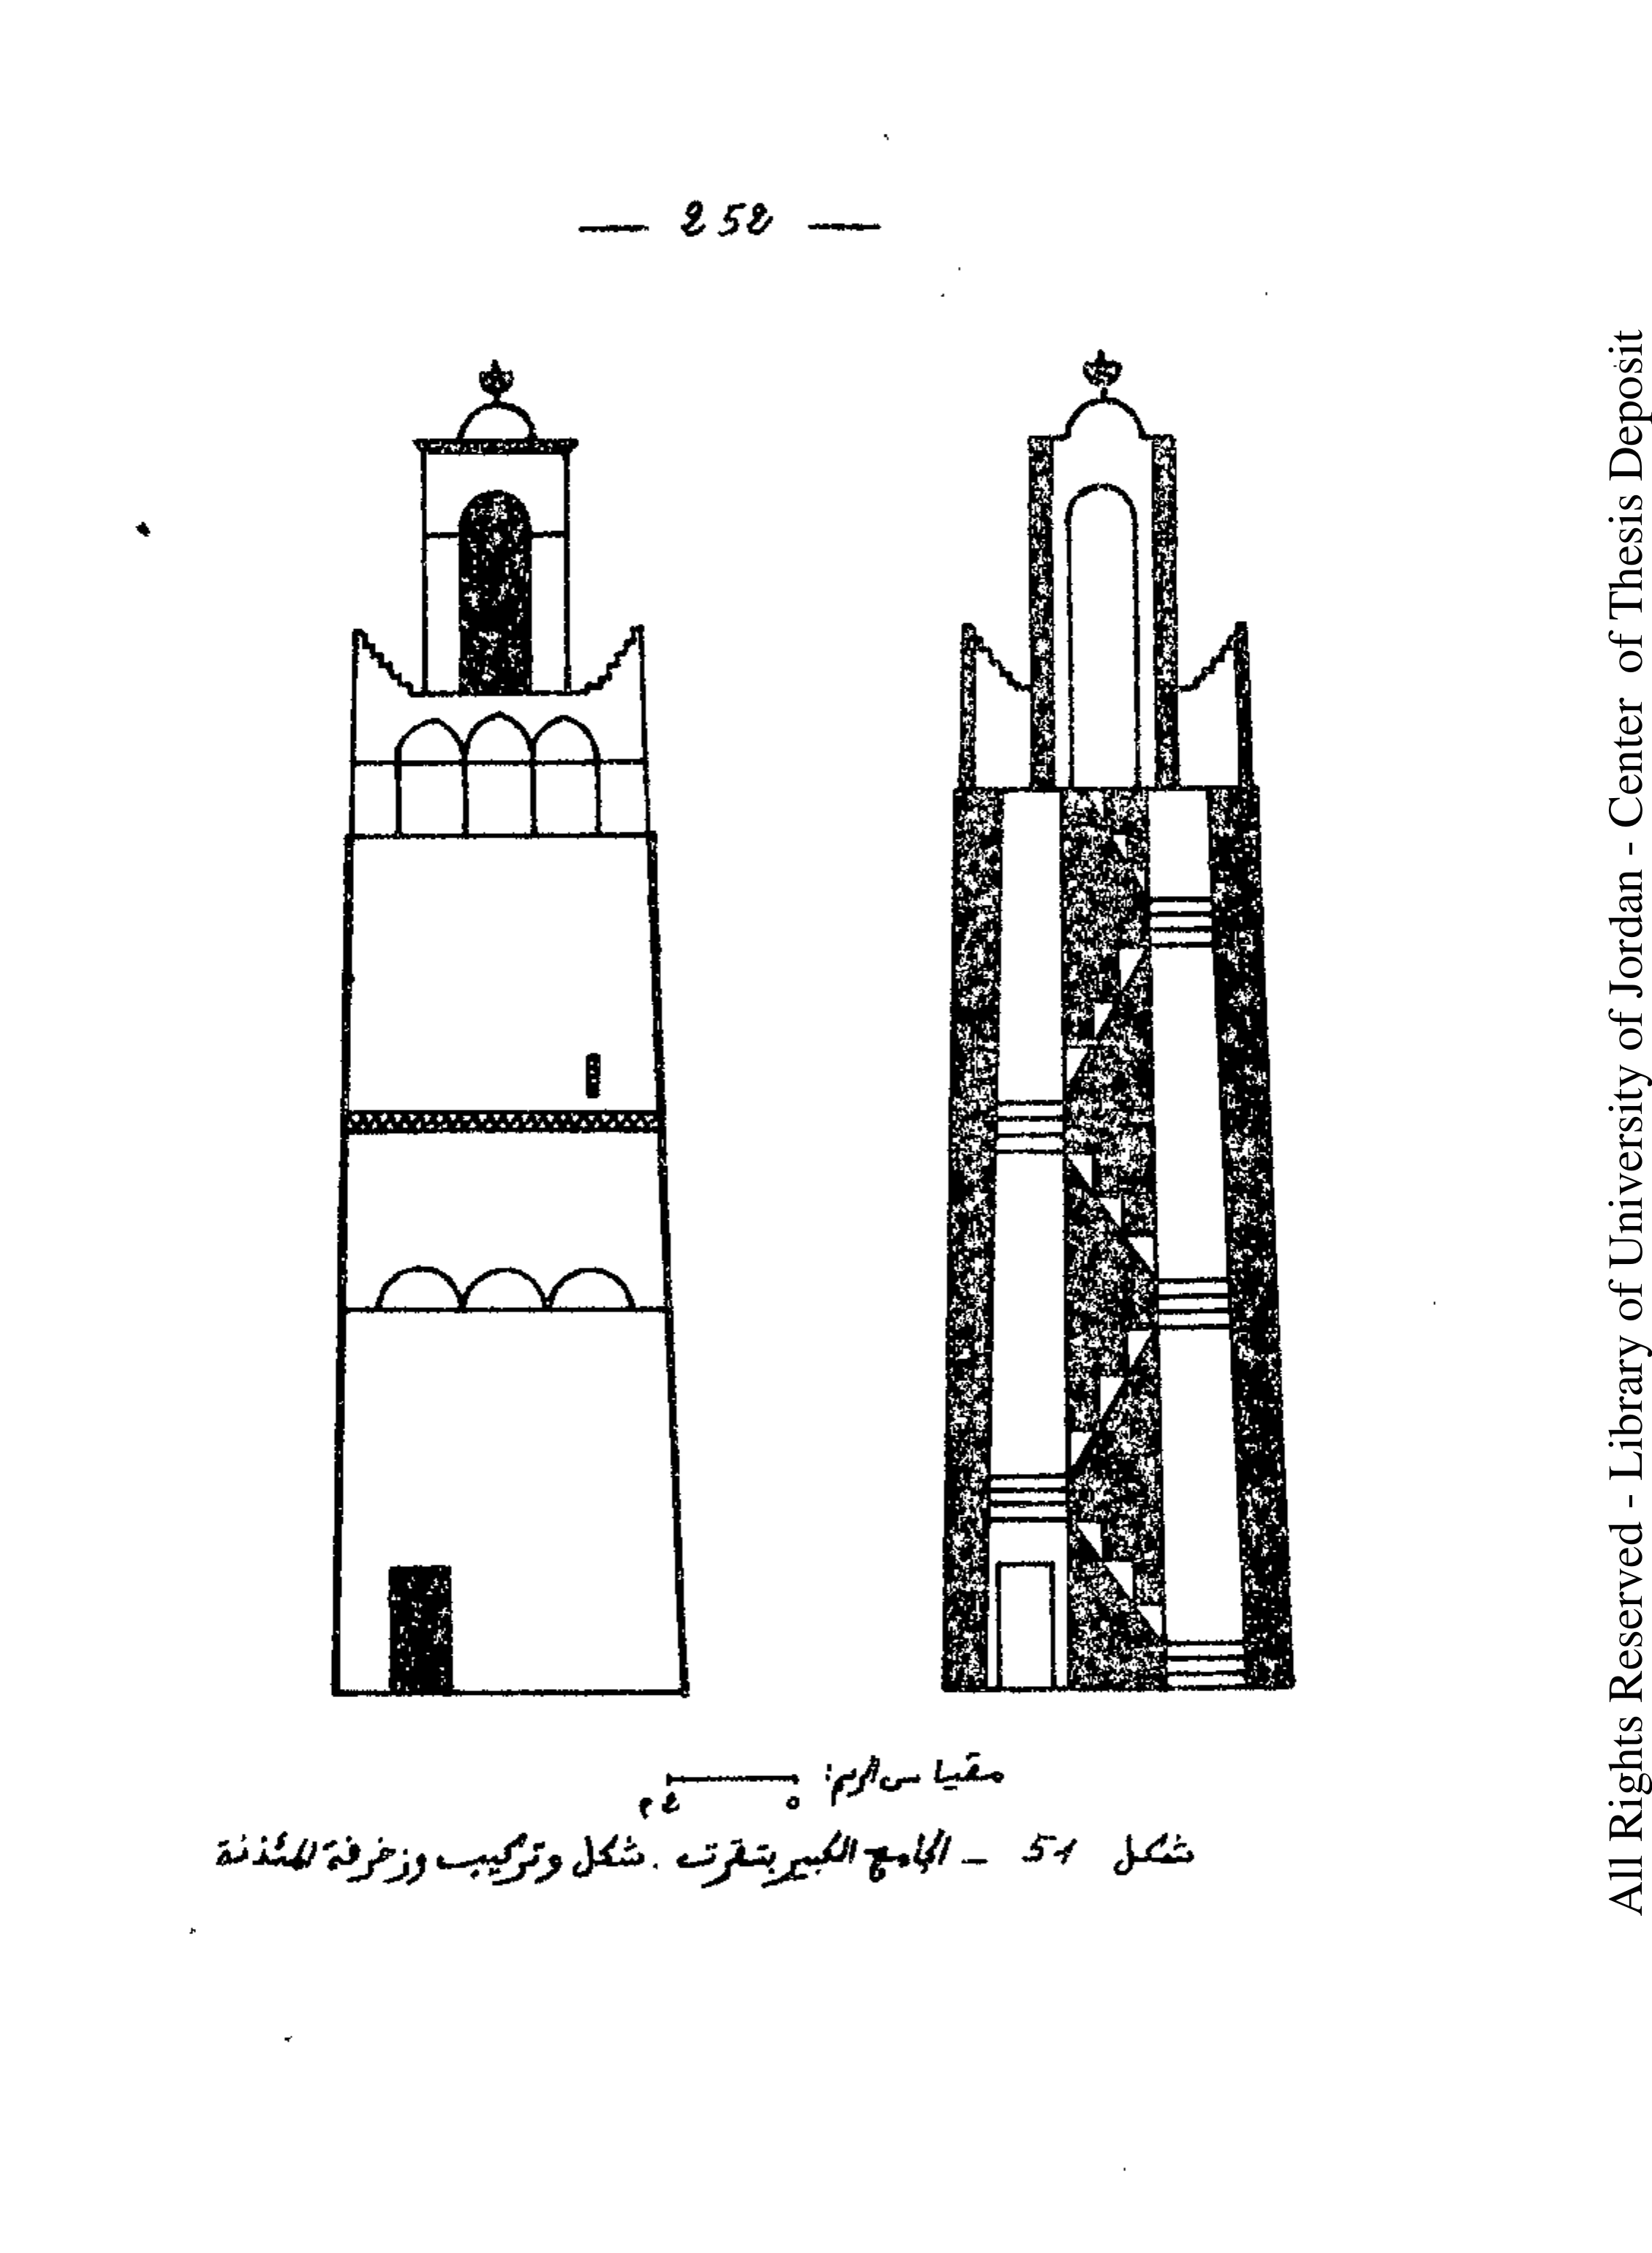 — 252 —
مقياس الرسم: 0 2م
شكل 51 - الجامع الكبير بتقرت . شكل وتركيب وزخرفة المئذنة
All Rights Reserved - Library of University of Jordan - Center of Thesis Deposit